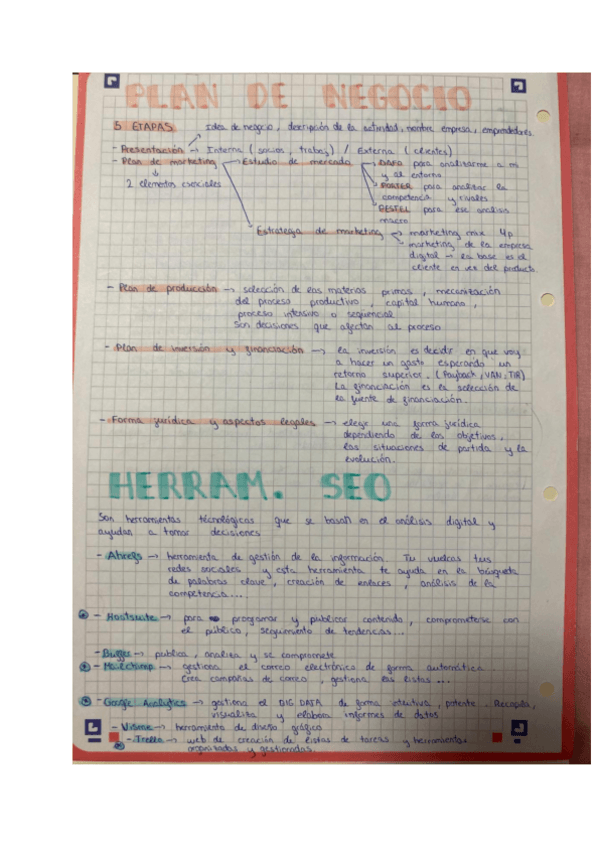 PLAN DE NEGOCIO
5 ETAPAS
Idea de negocio, descripción de la actividad, nombre empresa, emprendedores
- Presentación → Interna (socios, trabaj) / Externa (clientes)
- Plan de marketing → Estudio de mercado → DAFO para analizarme a mi
y al entorno
2 elementos esenciales
PORTER para analizar la
competencia y rivales
PESTEL para ese análisis
macro
Estrategia de marketing → marketing mix 4p
marketing de la empresa
digital → la base es el
cliente en vez del producto
- Plan de producción → selección de las materias primas, mecanización
del proceso productivo, capital humano,
proceso intensivo o sequencial
Son decisiones que afectan al proceso
- Plan de inversión y financiación → la inversión es decidir en que voy
a hacer un gasto esperando un
retorno superior. (Payback, VAN, TIR)
La financiación es la selección de
la fuente de financiación.
- Forma jurídica y aspectos legales → elegir una forma jurídica
dependiendo de los objetivos,
las situaciones de partida y la
evolución.
HERRAM. SEO
Son herramientas técnológicas que se basan en el análisis digital y
ayudan a tomar decisiones
- Ahrefs → herramienta de gestión de la información. Tu vuelcas tus
redes sociales y esta herramienta te ayuda en la búsqueda
de palabras clave, creación de enlaces, análisis de la
competencia....
- Hootsuite → para programar y publicar contenido, comprometerse con
el público, seguimiento de tendencias...
- Buffer → publica, analiza y se compromete
- Mailchimp → gestiona el correo electrónico de forma automática.
Crea campañas de correo, gestiona las listas ...
- Google Analytics → gestiona el BIG DATA de forma intuitiva, potente. Recopila,
visualiza y elabora informes de datos
- Visme → herramienta de diseño gráfico
- Trello → web de creación de listas de tareas y herramientas
organizadas y gestionadas.